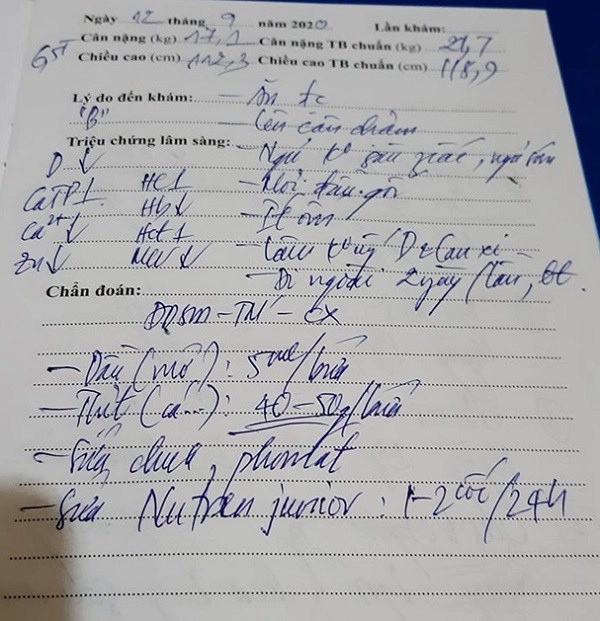 Ngày 12 tháng 9 năm 2020 Lần khám:
Cân nặng (kg) 17,1 Cân nặng TB chuẩn (kg) 21,7
Chiều cao (cm) 112,3 Chiều cao TB chuẩn (cm) 118,9
6ST
Lý do đến khám: - Ăn đc
"B" - Lên cân chậm
Triệu chứng lâm sàng: - Ngủ ko sâu giấc,
D↓ - Mỏi đầu gối
CaTP↓ HC↓ - Ít ốm
Ca2+↓ Hb↓
Hct↓
Zn↓ MCV↓ - Đi ngoài 2 ngày/lần,
Chẩn đoán:
- Dầu (mỡ): 5ml/bữa
- Thịt (cá...): 40-50g/bữa
- Sữa chua, phomat
- Sữa Nutren junior: 1-2 cốc/24h